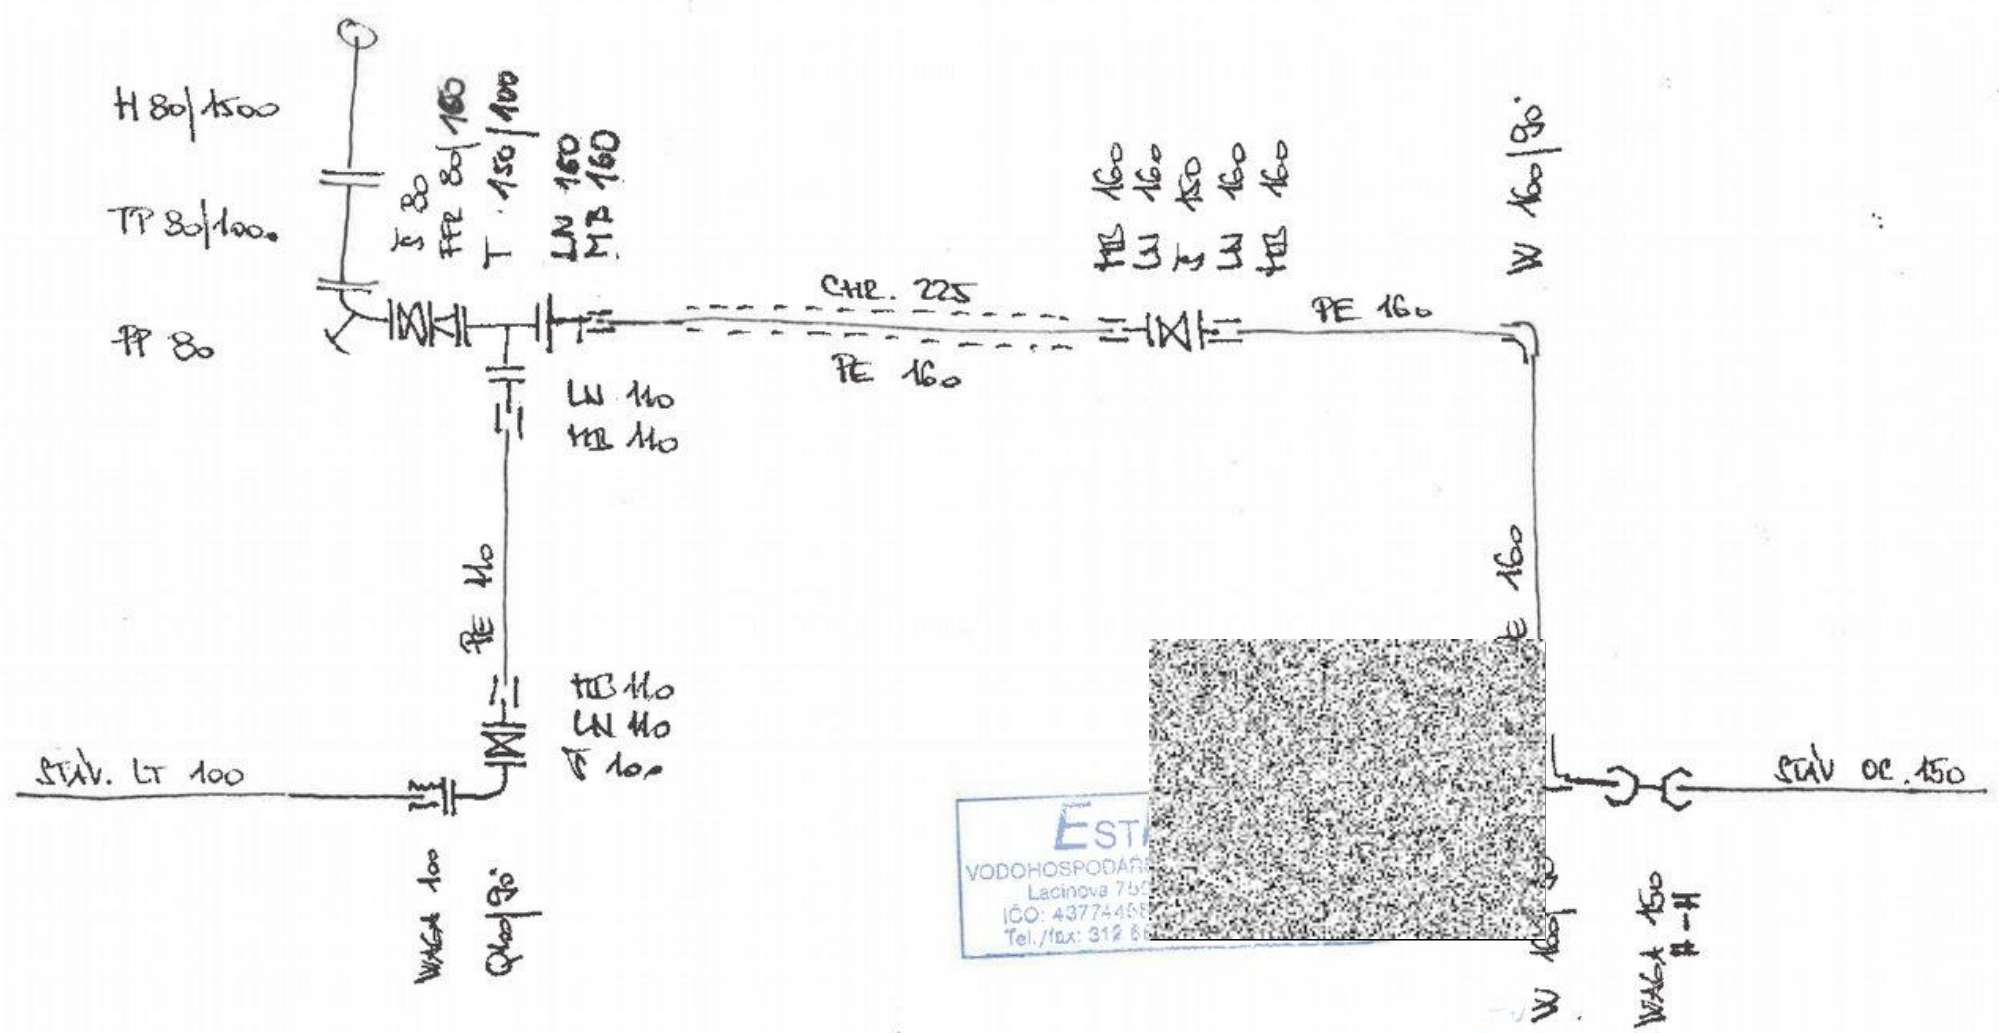 H 80/1500
TP 80/1000
PP 80
Š 80
FFR 80/150
T 150/100
LN 160
MB 160
CHR. 225
PE 160
MB 160
LN 160
Š 150
LN 160
MB 160
PE 160
W 160/90°
LN 110
MB 110
PE 110
MB 110
LN 110
Š 100
STÁV. LT 100
WAGA 100
Q 100/90°
160
STÁV OC. 150
W 160
WAGA 150
H-H
Lacinova
IČO:
Tel./fax: 312